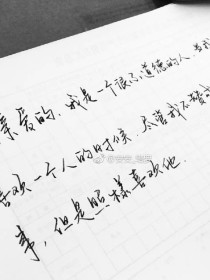 亲爱的，我是一个很不道德的人，当我
喜欢一个人的时候，尽管我不赞成
事，但是照樣喜欢他.